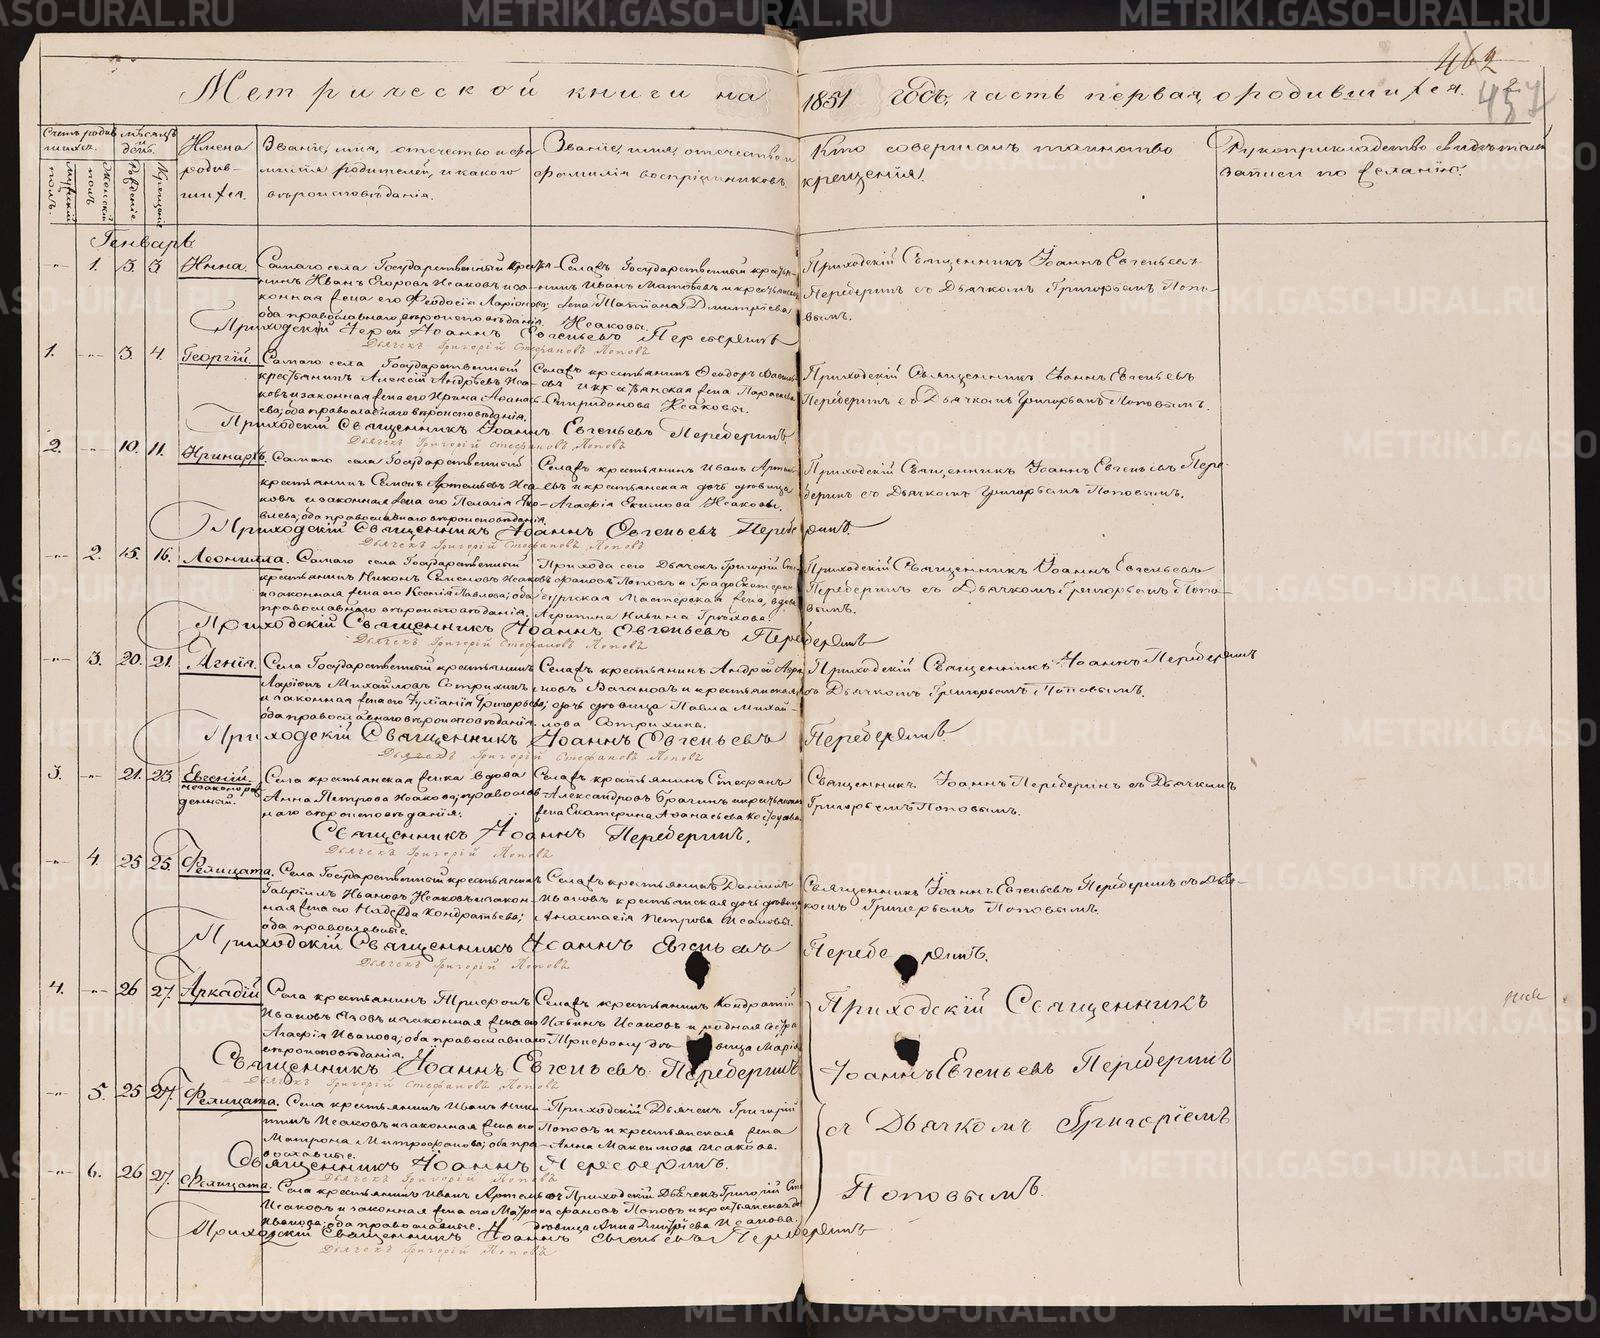 462
457
Метрической книги на 1851 годъ, часть первая, о родившихся.
Счетъ родившихся.
Мужескій полъ.
Женскій полъ.
Мѣсяцъ и день.
Рожденіе
Крещеніе
Имена родившихся.
Званіе, имя, отечество и фамилія родителей, и какого вѣроисповѣданія.
Званіе, имя, отечество и фамилія воспріимниковъ.
Кто совершалъ таинство крещенія.
Рукоприкладство свидѣтелей записи по желанію.
Генварь
1. 3. 3 Анна.
Самаго села Государственный крестьянинъ Иванъ Егоровъ Исаковъ и законная жена его Феодосія Ларіонова;
оба православнаго вѣроисповѣданія.
Села съ Государственный крестьянинъ Иванъ Матвѣевъ и крестьянская жена Татіана Дмитріева Исаковы.
Приходскій Священникъ Іоаннъ Евгеньевъ
Переберинъ съ Дьячкомъ Григорьемъ Поповымъ.
Приходскій Іерей Іоаннъ Евгеньевъ Переберинъ
Дьячекъ Григорій Стефановъ Поповъ
1. 3. 4. Георгій.
Самаго села Государственный
крестьянинъ Алексій Андреевъ Исаковъ и законная жена его Ирина Афанасьева; оба православнаго вѣроисповѣданія.
Села съ крестьянинъ Феодоръ
и крестьянская жена
Спиридонова Исаковы.
Приходскій Священникъ Іоаннъ Евгеньевъ
Переберинъ съ Дьячкомъ Григорьемъ Поповымъ.
Приходскій Священникъ Іоаннъ Евгеньевъ Переберинъ
Дьячекъ Григорій Стефановъ Поповъ
2. 10. 11. Иринархъ.
Самаго села Государственный
крестьянинъ Семенъ Артемьевъ Исаковъ и законная жена его Пелагія
оба православнаго вѣроисповѣданія.
Села съ крестьянинъ Иванъ
и крестьянская дочь дѣвица
Агафія Екимова Исаковы.
Приходскій Священникъ Іоаннъ Евгеньевъ Переберинъ съ Дьячкомъ Григорьемъ Поповымъ.
Приходскій Священникъ Іоаннъ Евгеньевъ Переберинъ
Дьячекъ Григорій Стефановъ Поповъ
2. 15. 16. Леонилла.
Самаго села Государственный
крестьянинъ Никонъ Семеновъ Исаковъ и законная жена его Ксенія Павлова; оба
православнаго вѣроисповѣданія.
Прихода сего Дьячекъ Григорій Стефановъ Поповъ и Градо Екатеринбургская Мастерская жена, вдова
Агрипина Ильина Грѣхова.
Приходскій Священникъ Іоаннъ Евгеньевъ
Переберинъ съ Дьячкомъ Григорьемъ Поповымъ.
Приходскій Священникъ Іоаннъ Евгеньевъ Переберинъ
Дьячекъ Григорій Стефановъ Поповъ
3. 20. 21. Агнія.
Села Государственный крестьянинъ
Ларіонъ Михайловъ Сотрихинъ
и законная жена его Іуліанія Григорьева;
оба православнаго вѣроисповѣданія.
Села съ крестьянинъ Андрей
Вагановъ и крестьянская
дочь дѣвица Павла Михайлова Сотрихина.
Приходскій Священникъ Іоаннъ Переберинъ
съ Дьячкомъ Григорьемъ Поповымъ.
Приходскій Священникъ Іоаннъ Евгеньевъ Переберинъ.
Дьячекъ Григорій Стефановъ Поповъ
3. 21. 23. Евесній. незаконорожденный.
Села крестьянская женка вдова
Анна Петрова Исакова; православнаго вѣроисповѣданія.
Села съ крестьянинъ Стефанъ
Александровъ Брагинъ и крестьянская
жена Екатерина Афанасьева
Священникъ Іоаннъ Переберинъ съ Дьячкомъ
Григорьемъ Поповымъ.
Священникъ Іоаннъ Переберинъ.
Дьячекъ Григорій Поповъ
4. 25 25. Фелицата.
Села Государственный крестьянинъ
Гавріилъ Ивановъ Исаковъ и законная жена его Надежда Кондратьева;
оба православные.
Села съ крестьянинъ Даніилъ
Ивановъ крестьянская дочь дѣвица
Анастасія Петрова Исаковы.
Священникъ Іоаннъ Евгеньевъ Переберинъ съ Дьячкомъ Григорьемъ Поповымъ.
Приходскій Священникъ Іоаннъ Евгеньевъ Переберинъ.
Дьячекъ Григорій Поповъ
4. 26 27. Аркадій
Села крестьянинъ Трифонъ
Ивановъ и законная жена его
Агафія Иванова; оба православнаго
вѣроисповѣданія.
Села съ крестьянинъ Кондратій
Ильинъ Исаковъ и родная сестра
Трифону дѣвица Марія
Приходскій Священникъ
Іоаннъ Евгеньевъ Переберинъ
съ Дьячкомъ Григоріемъ
Поповымъ.
Священникъ Іоаннъ Евгеньевъ Переберинъ
Дьячекъ Григорій Стефановъ Поповъ
5. 25 27. Фелицата.
Села крестьянинъ Иванъ Никитинъ Исаковъ и законная жена его
Матрона Митрофанова; оба православные.
Приходскій Дьячекъ Григорій
Поповъ и крестьянская жена
Анна Максимова Исакова.
Священникъ Іоаннъ Переберинъ.
Дьячекъ Григорій Поповъ
6. 26 27. Фелицата.
Села крестьянинъ Иванъ Артемьевъ
Исаковъ и законная жена его Матрона
Иванова; оба православные.
Приходскій Дьячекъ Григорій Стефановъ Поповъ и крестьянская
дѣвица Анна Дмитріева Исакова.
Приходскій Священникъ Іоаннъ Евгеньевъ Переберинъ
Дьячекъ Григорій Поповъ
METRIKI.GASO-URAL.RU